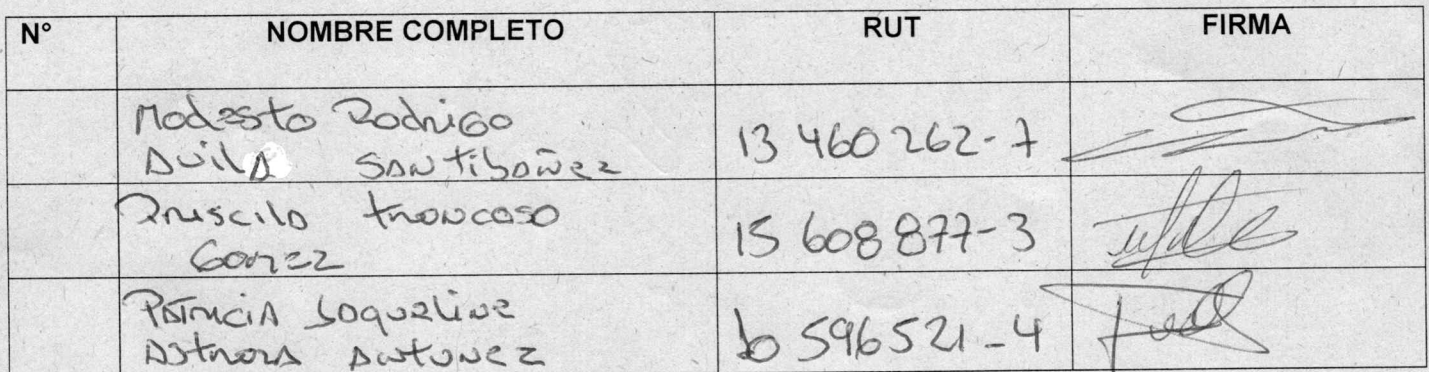 N° NOMBRE COMPLETO RUT FIRMA
Modesto Rodrigo
Avila Santibañez 13 460 262-7
Priscila troncoso
Gomez 15 608 877-3
Patricia Jaqueline
Astroza Antunez 10 596 521-4